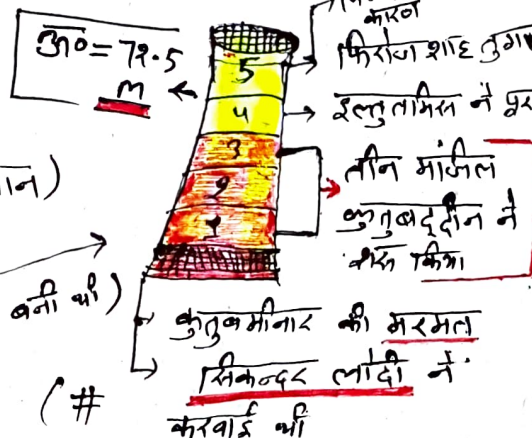 कारण
ऊँ० = 72.5
m
फिरोज शाह तुग
5
4
इल्तुतमिस ने पूर
3
2
1
तीन मंजिल
कुतुबद्दीन ने
शुरू किया
बनी थी)
कुतुबमीनार की मरमत
सिकन्दर लोदी ने
(#
करवाई थी